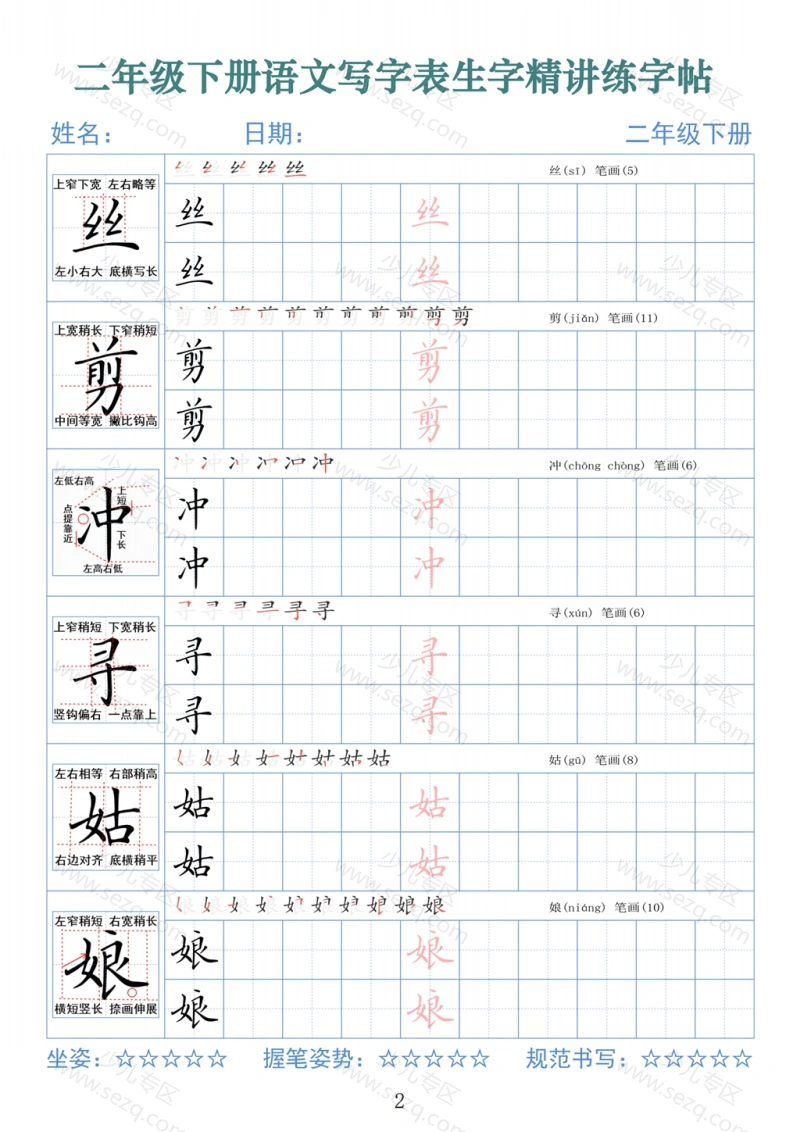 二年级下册语文写字表生字精讲练字帖
姓名： 日期： 二年级下册
丝(sī) 笔画(5)
上窄下宽 左右略等
丝
左小右大 底横写长
丝 丝
丝 丝
剪(jiǎn) 笔画(11)
上宽稍长 下窄稍短
剪
中间等宽 撇比钩高
剪 剪
剪 剪
冲(chōng chòng) 笔画(6)
左低右高
上短
点提靠近
冲
下长
左高右低
冲 冲
冲 冲
寻(xún) 笔画(6)
上窄稍短 下宽稍长
寻
竖钩偏右 一点靠上
寻 寻
寻 寻
姑(gū) 笔画(8)
左右相等 右部稍高
姑
右边对齐 底横稍平
姑 姑
姑 姑
娘(niáng) 笔画(10)
左窄稍短 右宽稍长
娘
横短竖长 捺画伸展
娘 娘
娘 娘
坐姿：☆☆☆☆☆ 握笔姿势：☆☆☆☆☆ 规范书写：☆☆☆☆☆
2
少儿专区
www.sezq.com